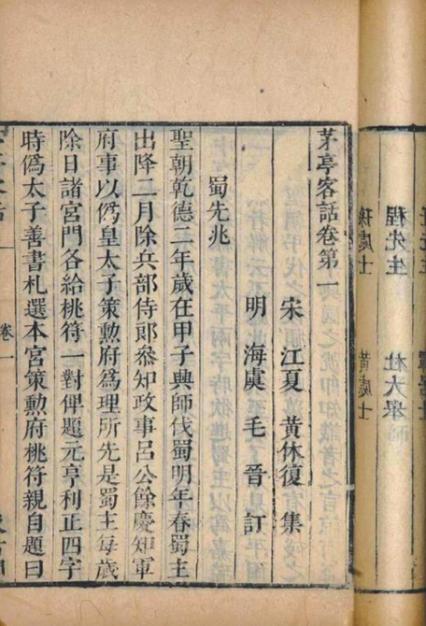 程先生 杜大舉
孫處士 黃處士
茅亭客話卷第一
宋 江夏 黃休復 集
明 海虞 毛晉 訂
蜀先兆
聖朝乾德二年歲在甲子興師伐蜀明年春蜀主
出降二月除兵部侍郎叅知政事呂公餘慶知軍
府事以僞皇太子策勲府爲理所先是蜀主每歲
除日諸宮門各給桃符一對俾題元亨利正四字
時僞太子善書札選本宮策勲府桃符親自題曰
卷一